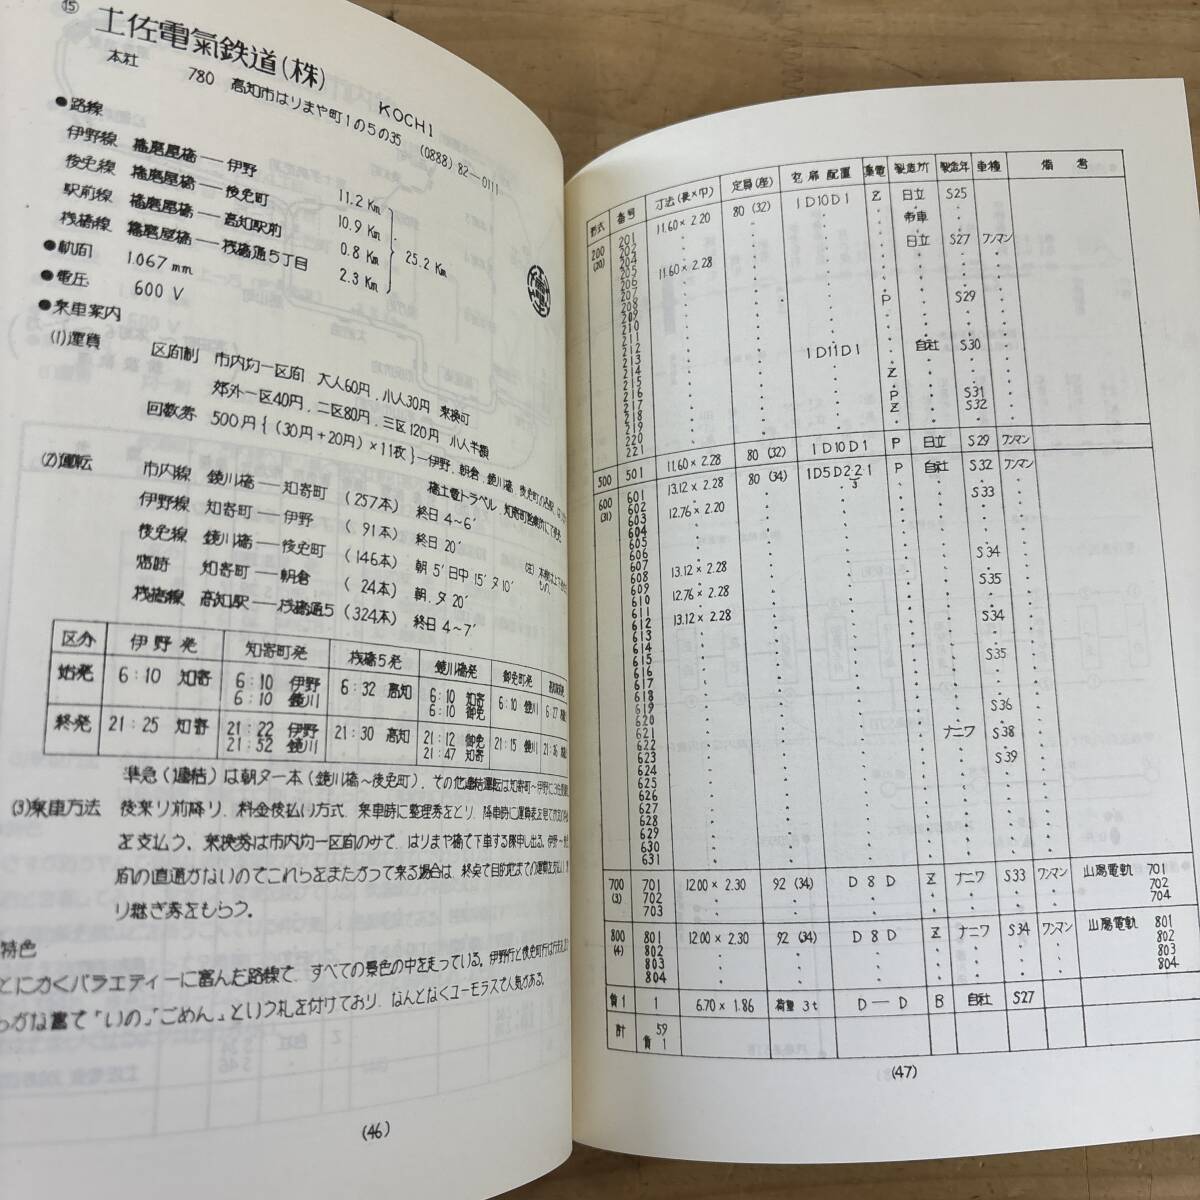 ⑮ 土佐電氣鉄道(株) KOCHI
本社 780 高知市はりまや町1の5の35 (0888)82—0111
●路線
伊野線 播磨屋橋——伊野 11.2 Km
後免線 播磨屋橋——後免町 10.9 Km
駅前線 播磨屋橋——高知駅前 0.8 Km
桟橋線 播磨屋橋——桟橋通5丁目 2.3 Km
25.2 Km
●軌間 1.067 mm
●電圧 600 V
●乗車案内
(1)運賃 区間制 市内均一区間 大人60円, 小人30円 乗換可
郊外一区40円, 二区80円, 三区120円 小人半額
回数券 500円{(30円+20円)×11枚}—伊野, 朝倉, 鏡川橋, 後免町の各駅
(2)運転 市内線 鏡川橋——知寄町 (257本) 終日 4~6′
伊野線 知寄町——伊野 (91本) 終日 20′
後免線 鏡川橋——後免町 (146本) 朝 5′日中 15′夕 10′
臨時 知寄町——朝倉 (24本) 朝,夕 20′
桟橋線 高知駅——桟橋通5 (324本) 終日 4~7′
区分 伊野発 知寄町発 桟橋5発 鏡川橋発 御免町発
始発 6:10 知寄 6:10 伊野 6:32 高知 6:10 知寄 6:10 鏡川 6:27
6:10 鏡川 6:10 御免
終発 21:25 知寄 21:22 伊野 21:30 高知 21:12 御免 21:15 鏡川 21:36
21:52 鏡川 21:47 知寄
準急(連結)は朝夕一本(鏡川橋~後免町), その他連結運転は知寄町~伊野に
(3)乗車方法 後乗り前降り, 料金後払い方式, 乗車時に整理券をとり, 降車時に運賃表を見て
を支払う。乗換券は市内均一区間のみで, はりまや橋で下車する際申し出る。伊野~
間の直通がないのでこれらをまたがって来る場合は, 終点で目的地までの運賃を
り継ぎ券をもらう。
特色
とにかくバラエティーに富んだ路線で, すべての景色の中を走っている。伊野行と後免町行は
らがな書で「いの」「ごめん」という札を付けており, なんとなくユーモラスで人気がある。
(46)
形式 番号 寸法(長×巾) 定員(座) 窓扉配置 集電 製造所 製造年 車種 備考
200 201 11.60×2.20 80(32) 1D10D1 Z 日立 S25
(20) 202 帝車
204 日立 S27 ワンマン
205 11.60×2.28
206
207 P S29
208
209
210
211 自社 S30
212 1D11D1
213
214 Z
215
216 P S31
217 Z S32
218
219
220
221
500 501 11.60×2.28 80(32) 1D10D1 P 日立 S29 ワンマン
600 601 13.12×2.28 80(34) 1D5D2·2·1/3 P 自社 S32 ワンマン
(31) 602 S33
603 12.76×2.20
604
605
606 S34
607
608 13.12×2.28 S35
609 12.76×2.28
610
611 13.12×2.28 S34
612
613
614 S35
615
616
617
618 S36
619
620
621 ナニワ S38
622
623 S39
624
625
626
627
628
629
630
631
700 701 12.00×2.30 92(34) D8D Z ナニワ S33 ワンマン 山陽電軌 701
(3) 702 702
703 704
800 801 12.00×2.30 92(34) D8D Z ナニワ S34 ワンマン 山陽電軌 801
(4) 802 802
803 803
804 804
貨1 1 6.70×1.86 荷重3t D—D B 自社 S27
計 59
貨1
(47)